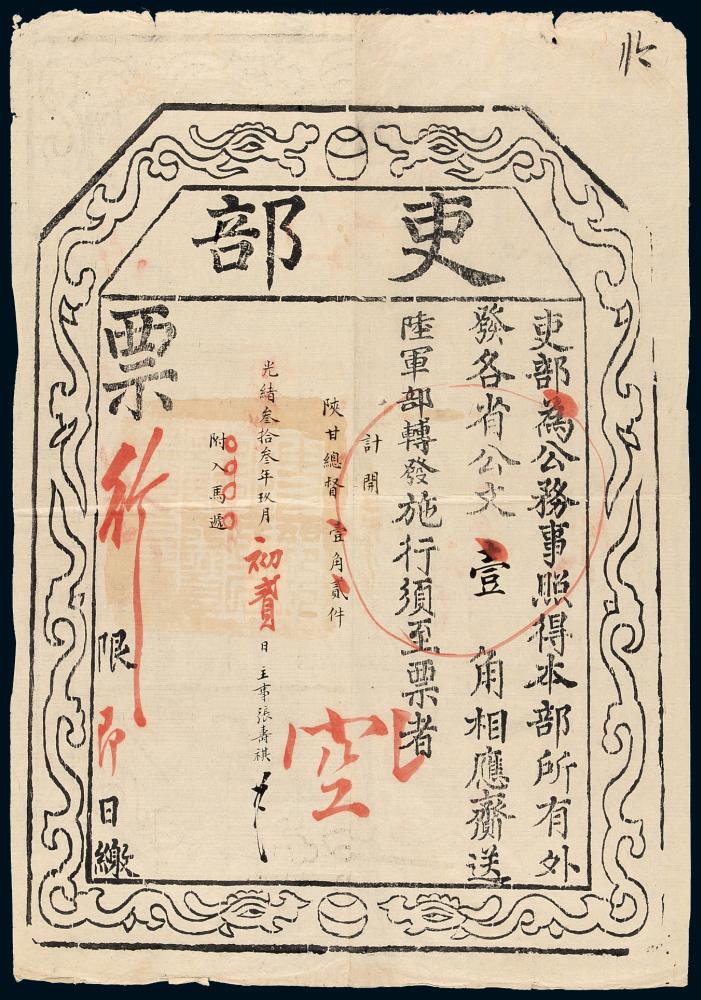 吏部
吏部為公務事照得本部所有外
發各省公文壹角相應齎送
陸軍部轉發施行須至票者
計開
陝甘總督壹角貳件
光緒叁拾叁年玖月初貳日主事張壽祺
附入馬遞
票行
限即日繳